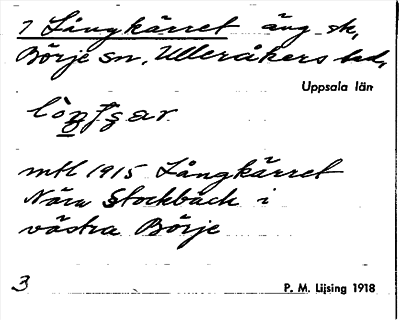 7 Långkärret äng sk,
Börje sn, Ulleråkers hd,
Uppsala län
mtl 1915 Långkärret
Nära Stockbäck i
västra Börje
3
P. M. Lijsing 1918